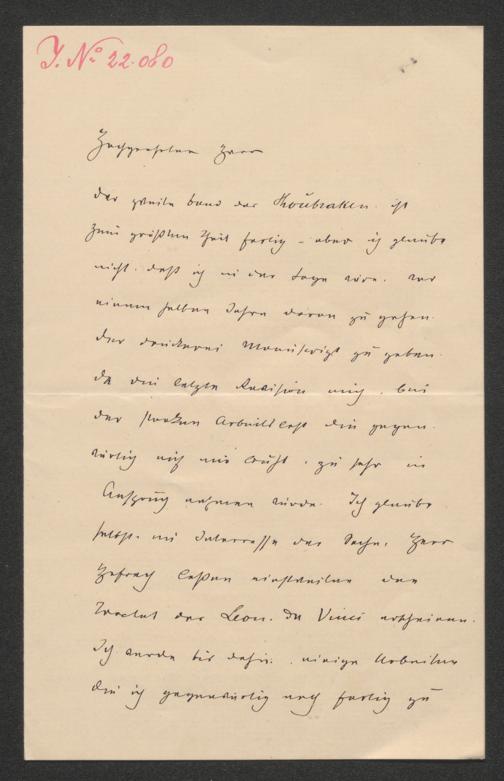 J. No 22.080
Hochgeehrter Herr
der zweite Band des Houbraken ist
zum größten Theil fertig – aber ich glaube
nicht daß ich in der Lage wäre vor
einem halben Jahre daran zu gehen
der Druckerei Manuscript zu geben
da die letzte Revision mich, bei
der starken Arbeitslast die gegen
wärtig auf mir ruht, zu sehr in
Anspruch nehmen würde. Ich glaube
selbst im Interesse der Sache, Herr
lassen einstweilen den
Tractat des Leon. da Vinci erscheinen.
Ich werde bis dahin einige Arbeiten
die ich gegenwärtig noch fertig zu